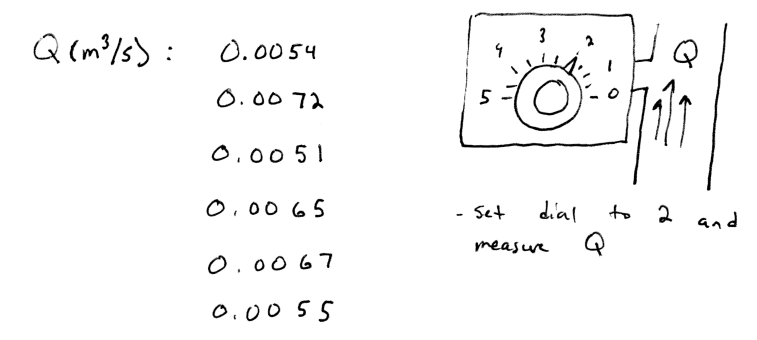 Q (m³/s) : 0.0054
0.0072
0.0051
0.0065
0.0067
0.0055
5 4 3 2 1 0
Q
- set dial to 2 and
measure Q